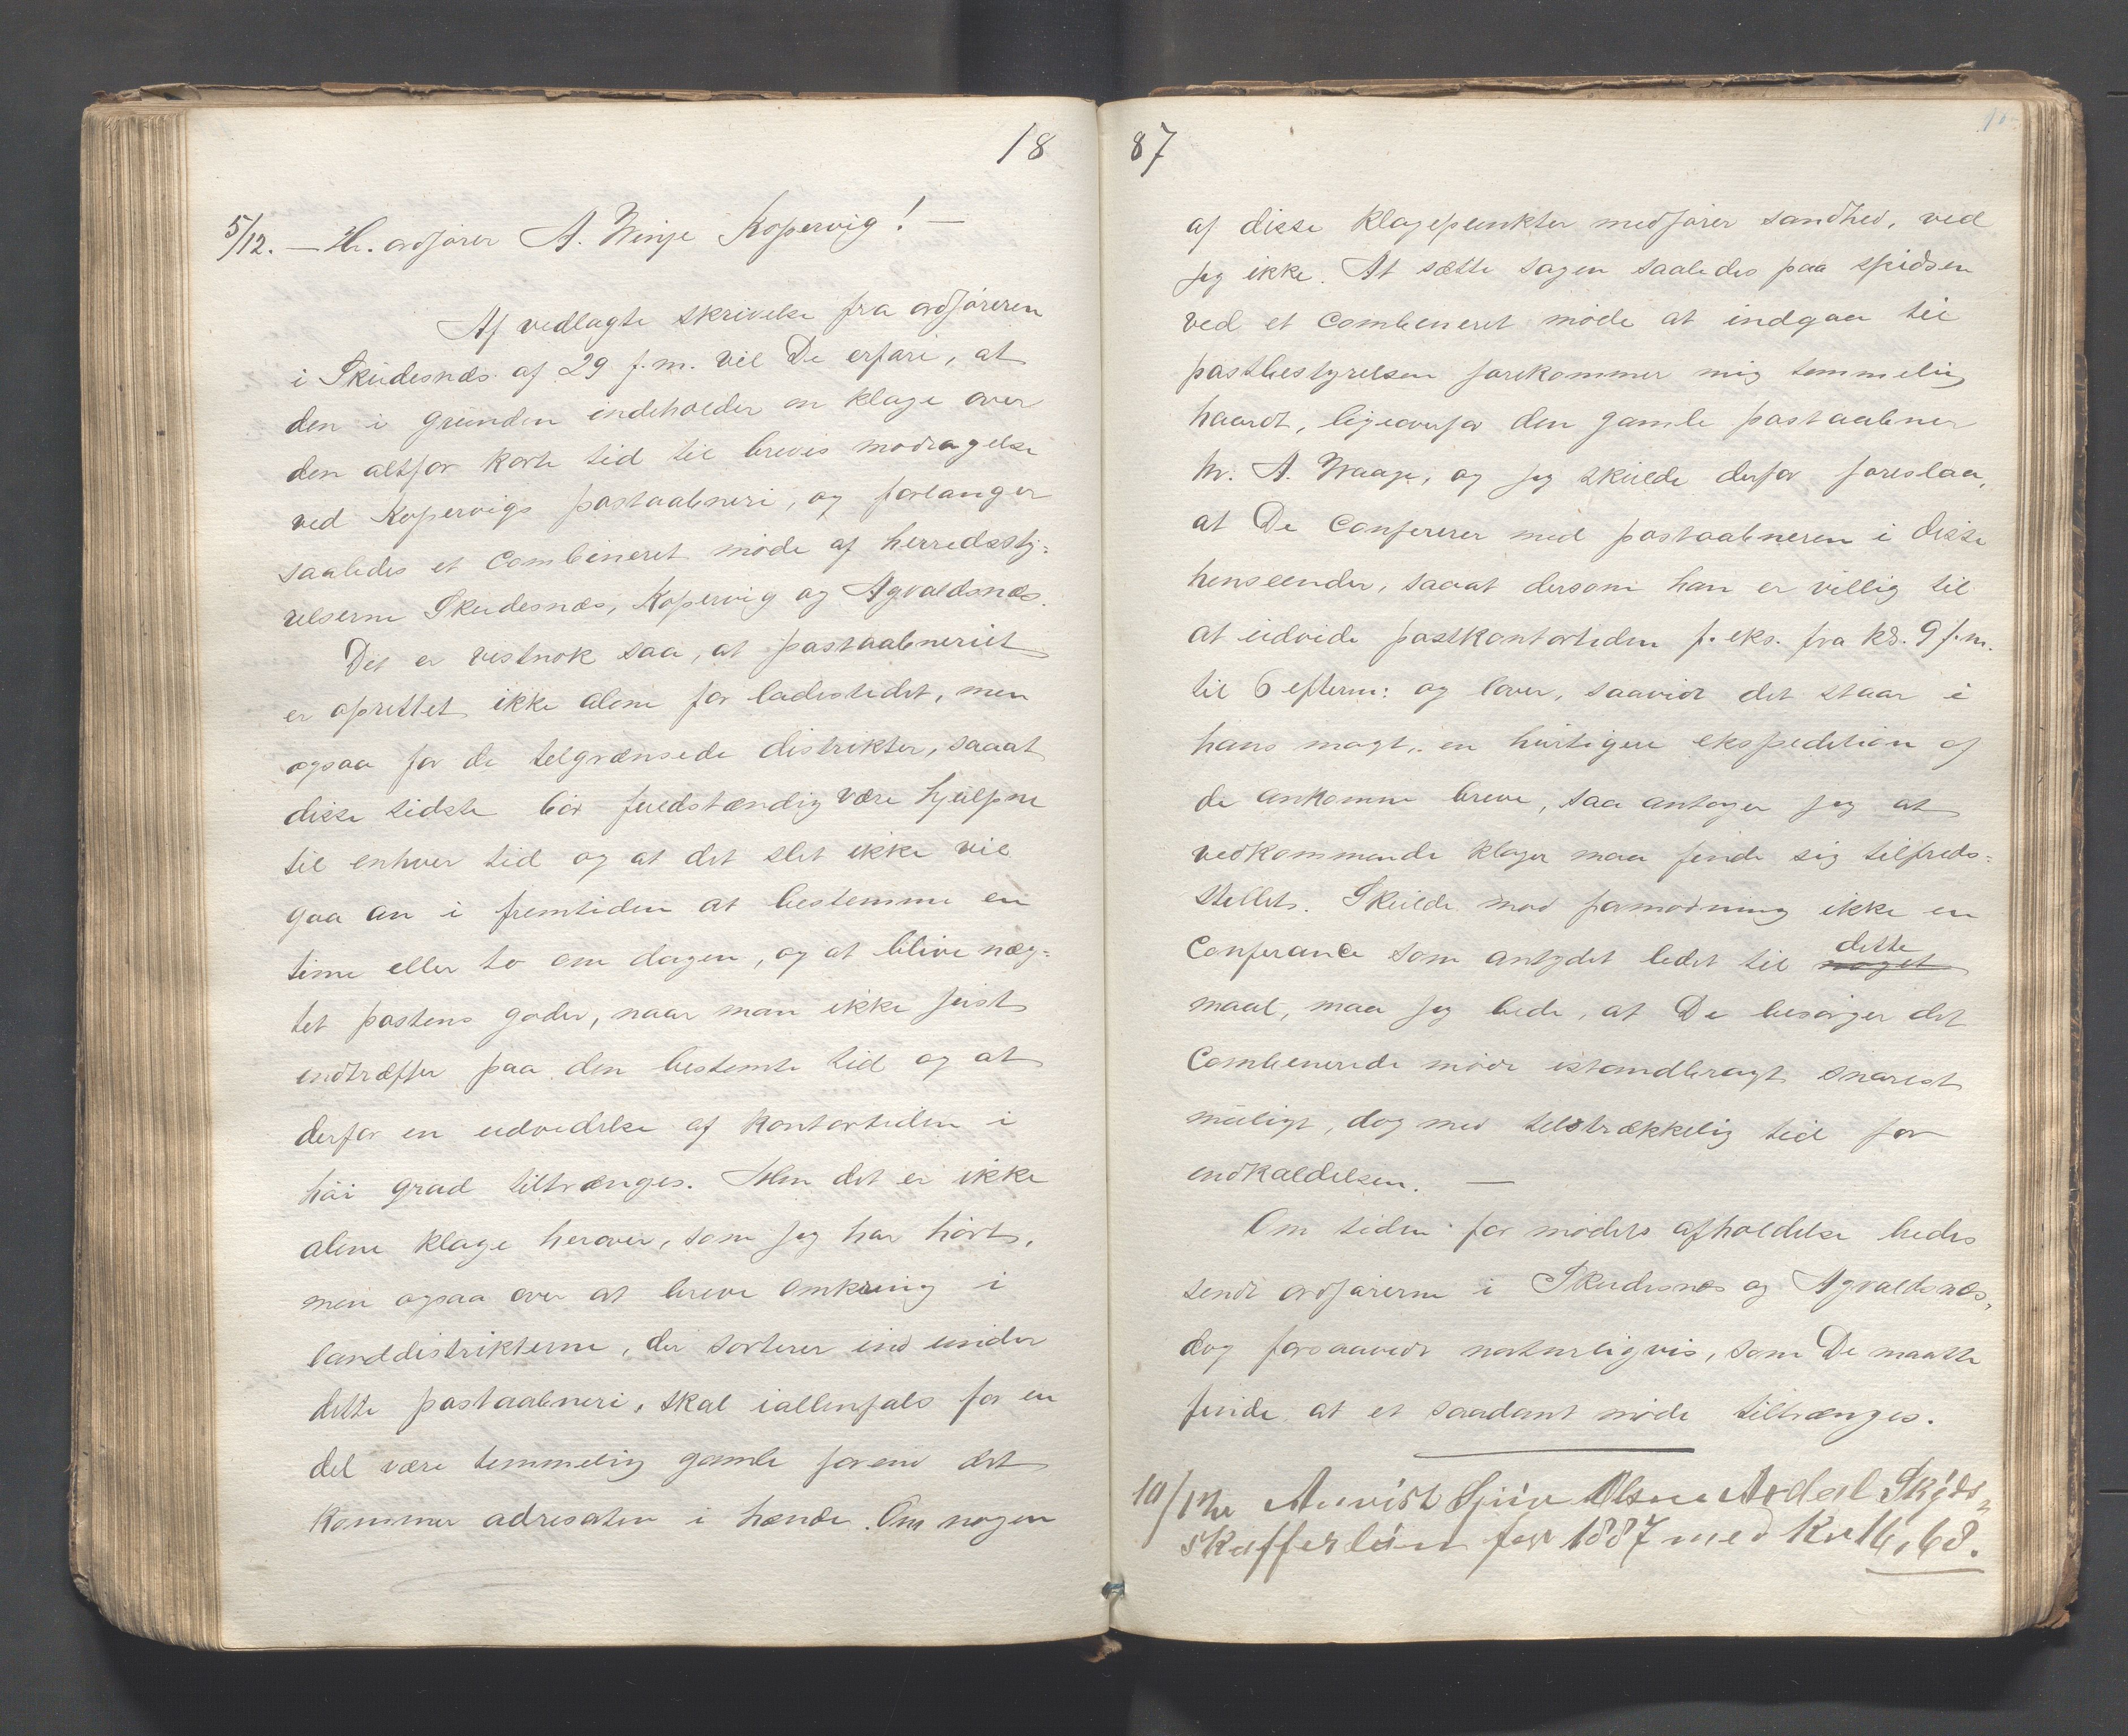 18
5/12. — Hr. ordfører A. Vinje Kopervig! —
Af vedlagte skrivelse fra ordføreren
i Skudesnæs af 29 f. m. vil De erfare, at
den i grunden indeholder en klage over
den altfor korte tid til breves modtagelse
ved Kopervigs postaabneri, og forlanger
saaledes et combineret møde af herredssty=
relserne Skudesnæs, Kopervig og Agvaldsnæs.
Det er vistnok saa, at postaabneriet
er oprettet ikke alene for ladestedet, men
ogsaa for de tilgrænsede distrikter, saaat
disse sidste bør fuldstændig være hjulpne
til enhver tid og at det slet ikke vil
gaa an i fremtiden at bestemme en
time eller to om dagen, og at blive næg=
tet postens goder, naar man ikke just
indtræffer paa den bestemte tid og at
derfor en udvidelse af kontortiden i
høi grad tiltrænges. Men det er ikke
alene klage herover, som jeg har hørt,
men ogsaa over at breve omkring i
landdistrikterne, der sorterer ind under
dette postaabneri, skal iallenfals for en
del være temmelig gamle forend det
kommer adresaten i hænde. Om nogen
87
af disse klagepunkter medfører sandhed, ved
jeg ikke. At sætte sagen saaledes paa spidsen
ved et combineret møde at indgaa til
postbestyrelsen forekommer mig temmelig
haardt, ligeoverfor den gamle postaabner
hr. A. Waage, og jeg skulde derfor foreslaa,
at De confererer med postaabneren i disse
henseender, saaat dersom han er villig til
at udvide postkontortiden f. eks. fra kl. 9 f. m.
til 6 efterm: og lover, saavidt det staar i
hans magt, en hurtigere ekspedition af
de ankomne breve, saa antager jeg at
vedkommende klager maa finde sig tilfreds=
stillet. Skulde mod formodning ikke en
Conferance som antydet ledet til noget dette
maal, maa jeg bede, at De besørger det
Combinerede møde istandbragt snarest
muligt, dog med tilstrækkelig tid for
indkaldelsen. —
Om tiden for mødets afholdelse bedes
sendt ordførerne i Skudesnæs og Agvaldsnæs,
dog forsaavidt naturligvis, som De maatte
finde at et saadant møde tiltrænges.
10/12 Anvist Olsen Skyds=
skafferløn for 1887 med Kr 16,68.